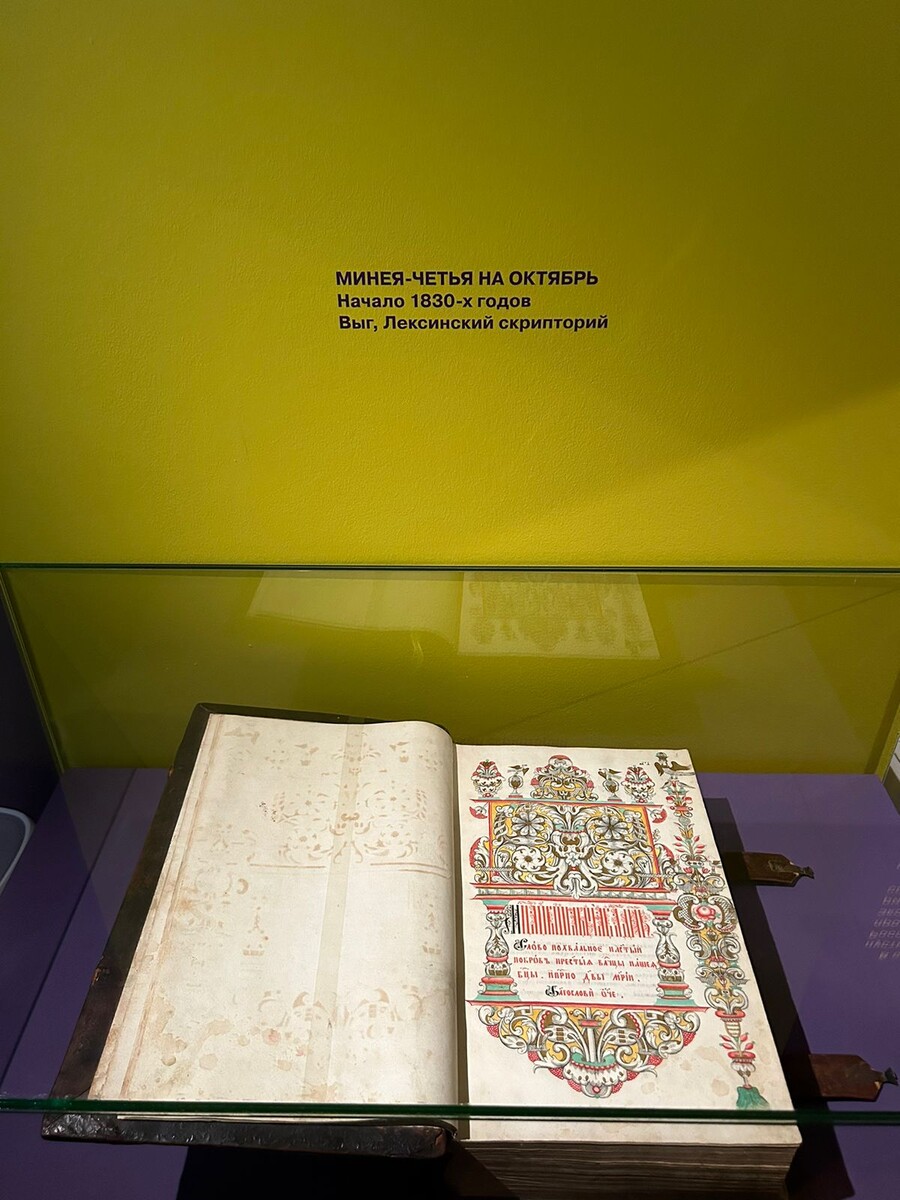 МИНЕЯ-ЧЕТЬЯ НА ОКТЯБРЬ
Начало 1830-х годов
Выг, Лексинский скрипторий
Сло́во похва́льное на ст҃ы́й
покро́въ прест҃ы́ѧ влⷣчцы на́шеѧ
бцⷣы. и прⷭно дв҃ы мр҃і́и.
Блⷭгослови́ ѻ҆́ч҃е.